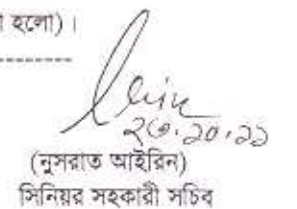 হলো)।
২৩.১০.২২
(নুসরাত আইরিন)
সিনিয়র সহকারী সচিব